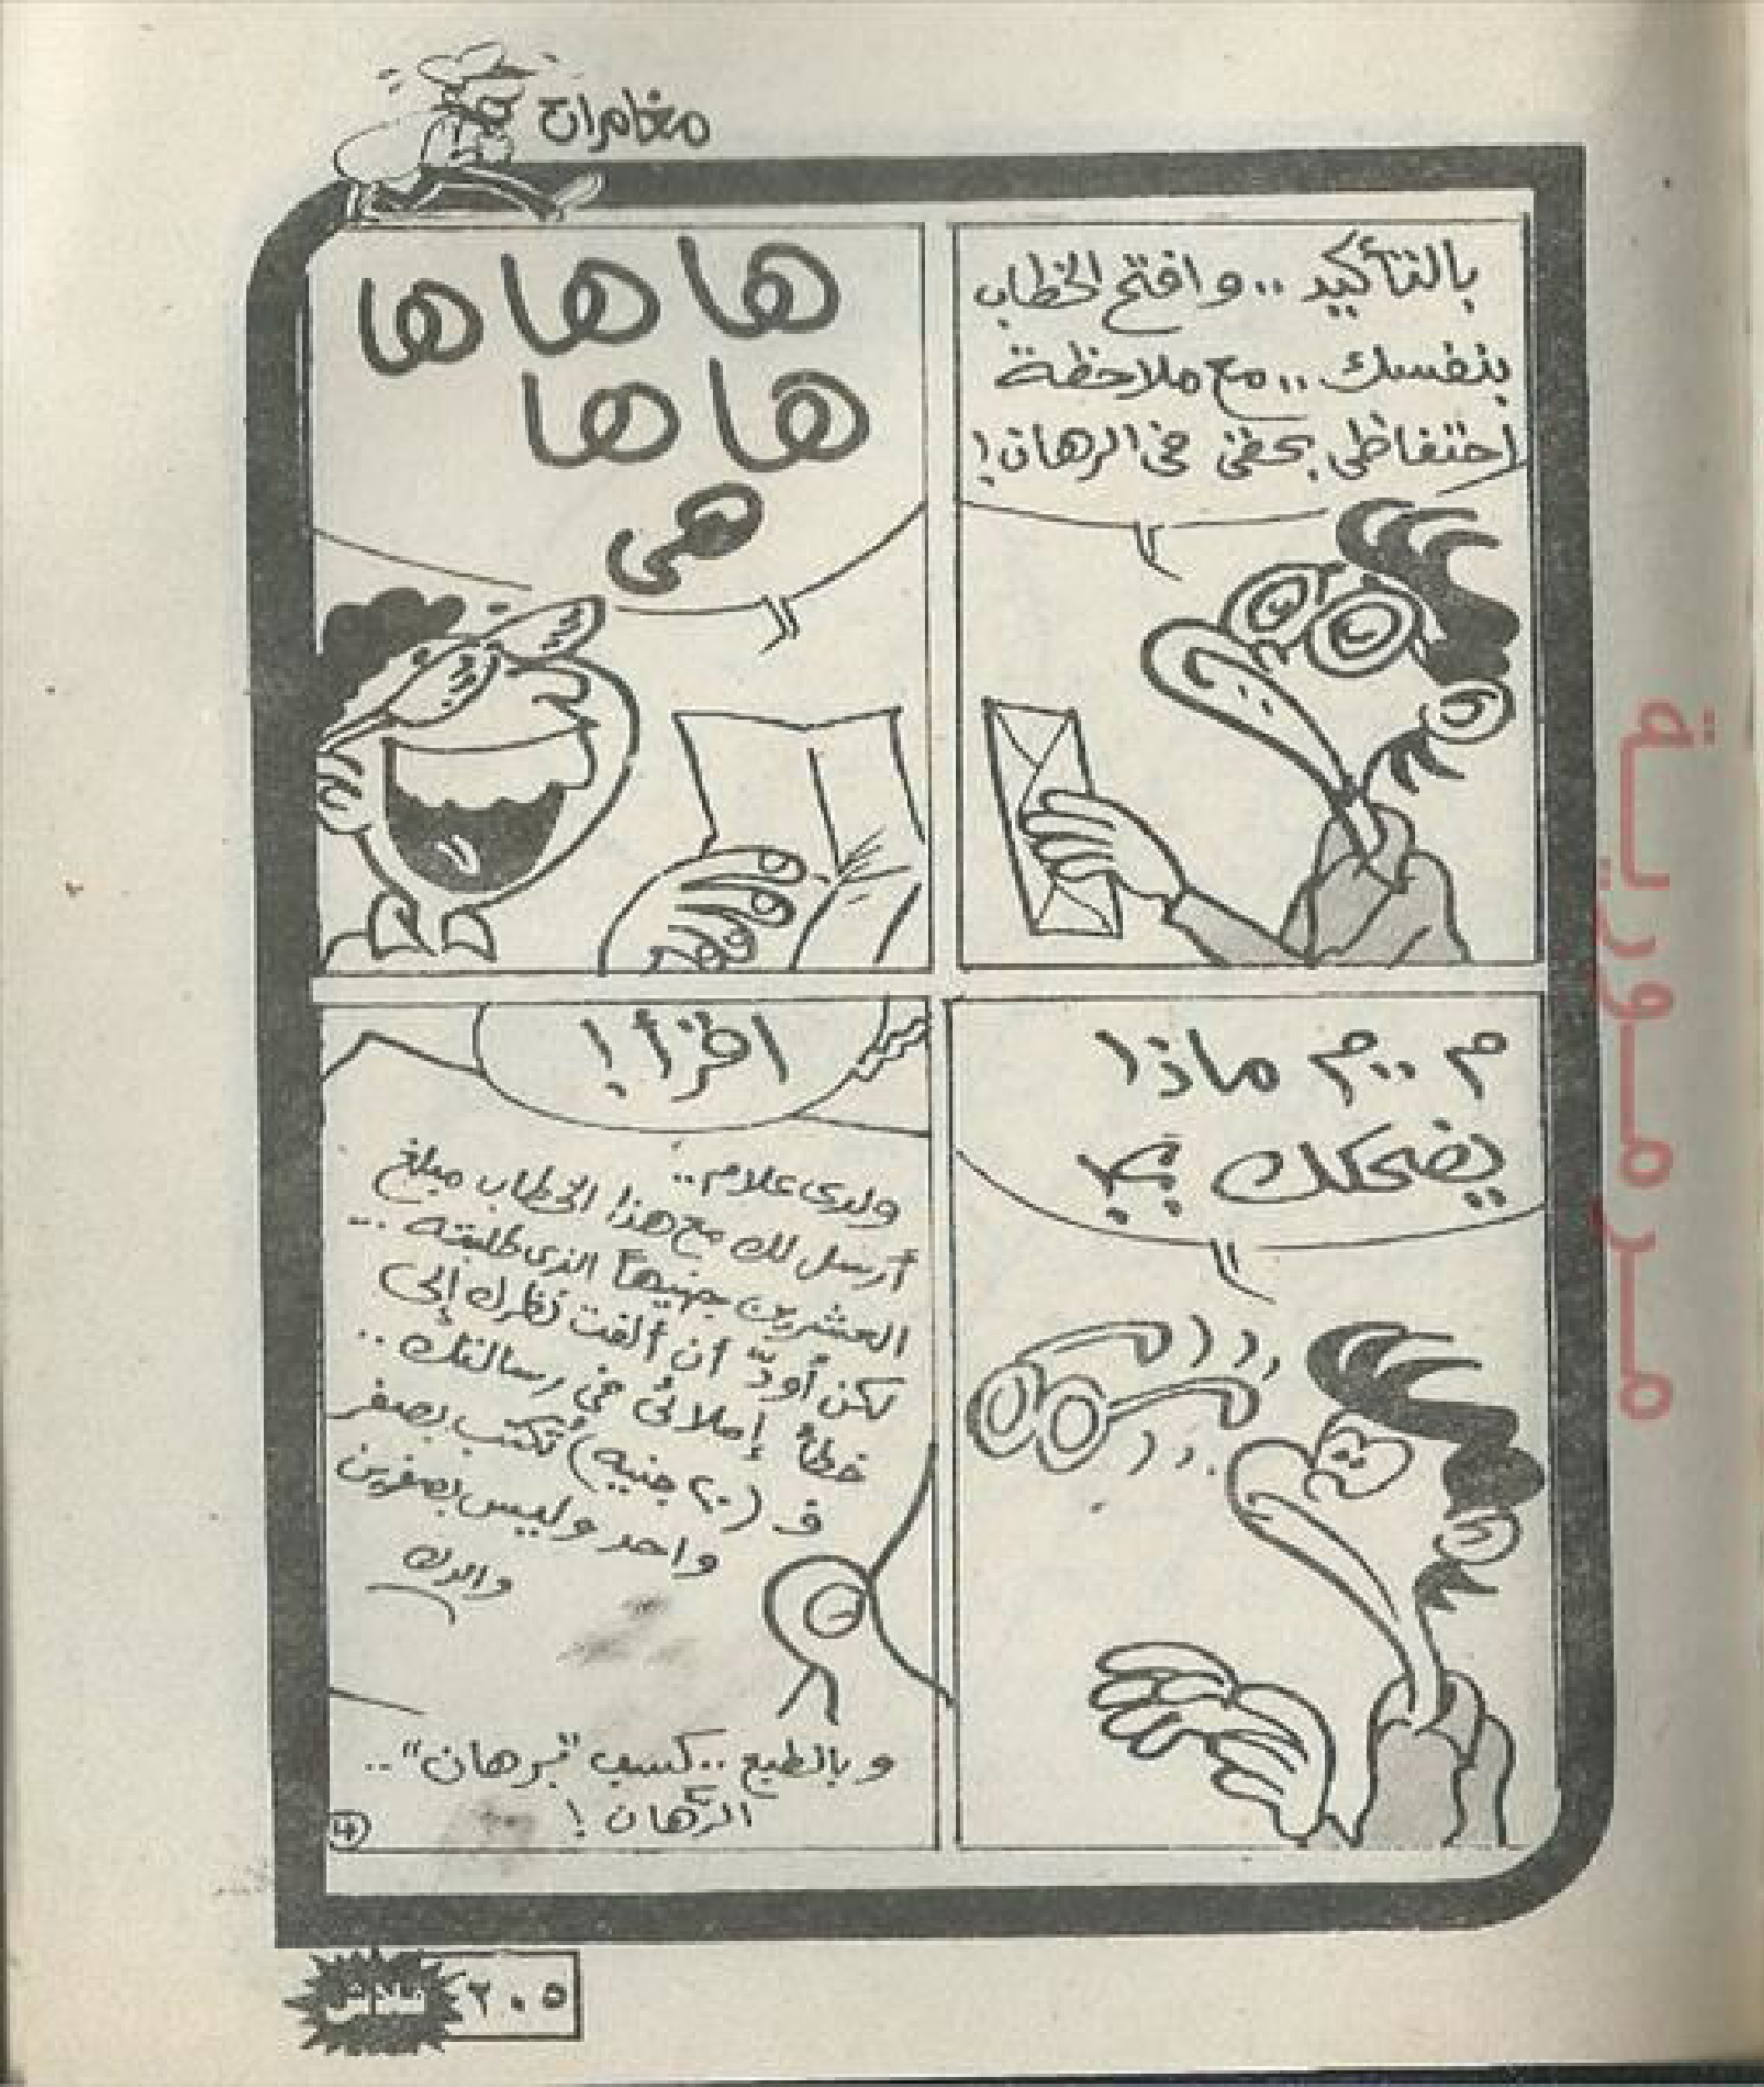 مغامرات
بالتأكيد .. وافتح الخطاب
بنفسك .. مع ملاحظة
احتفاظى بحقى فى الرهان !
ها ها ها
ها ها
هى
م .. م ماذا
يضحكك ؟!
اقرأ !
ولدى علام ..
أرسل لك مع هذا الخطاب مبلغ
العشرين جنيهاً الذى طلبته ...
لكن أودّ أن ألفت نظرك إلى
خطأ إملائى فى رسالتك ..
ف (٢٠ جنيه) تُكتب بصفر
واحد وليس بصفرين
والدك
وبالطبع .. كسب "برهان" ..
الرِّهان !
٤
٢٠٥
مـرمـوريـة